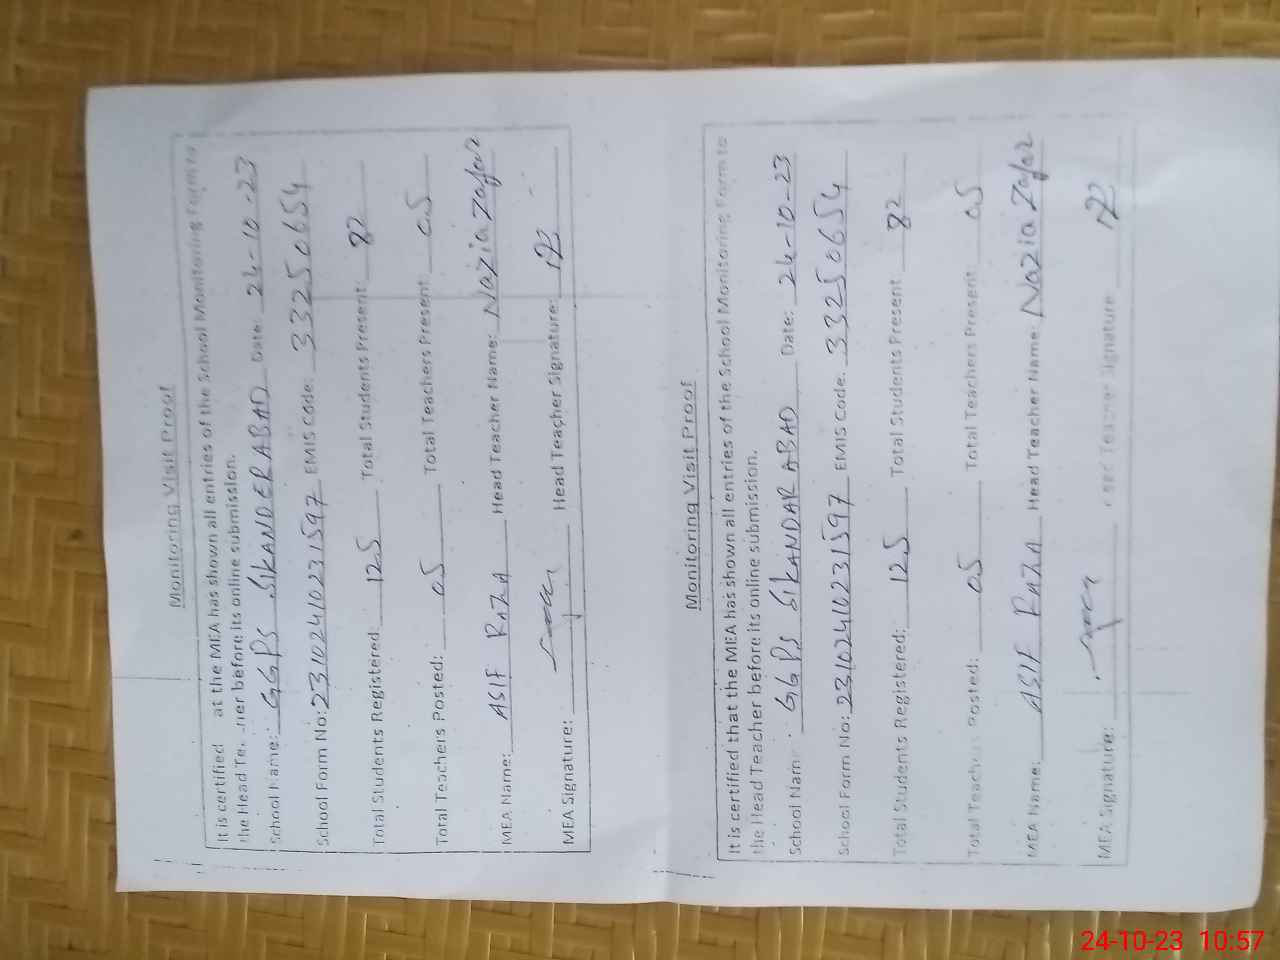 Monitoring Visit Proof
It is certified at the MEA has shown all entries of the School Monitoring Form to
the Head Te. .ner before its online submission.
School Name: GGPS SIKANDERABAD Date: 24-10-23
School Form No: 23102410231597 EMIS Code: 33250654
Total Students Registered: 125 Total Students Present: 82
Total Teachers Posted: 05 Total Teachers Present: 05
MEA Name: ASIF RAZA Head Teacher Name: Nazia Zafar
MEA Signature: Head Teacher Signature:
Monitoring Visit Proof
It is certified that the MEA has shown all entries of the School Monitoring Form to
the Head Teacher before its online submission.
School Nam : GGPS SIKANDARABAD Date: 24-10-23
School Form No: 23102410231597 EMIS Code: 33250654
Total Students Registered: 125 Total Students Present 82
Total Teachers Posted: 05 Total Teachers Present: 05
MEA Name: ASIF RAZA Head Teacher Name: Nazia Zafar
MEA Signature: Head Teacher Signature
24-10-23 10:57